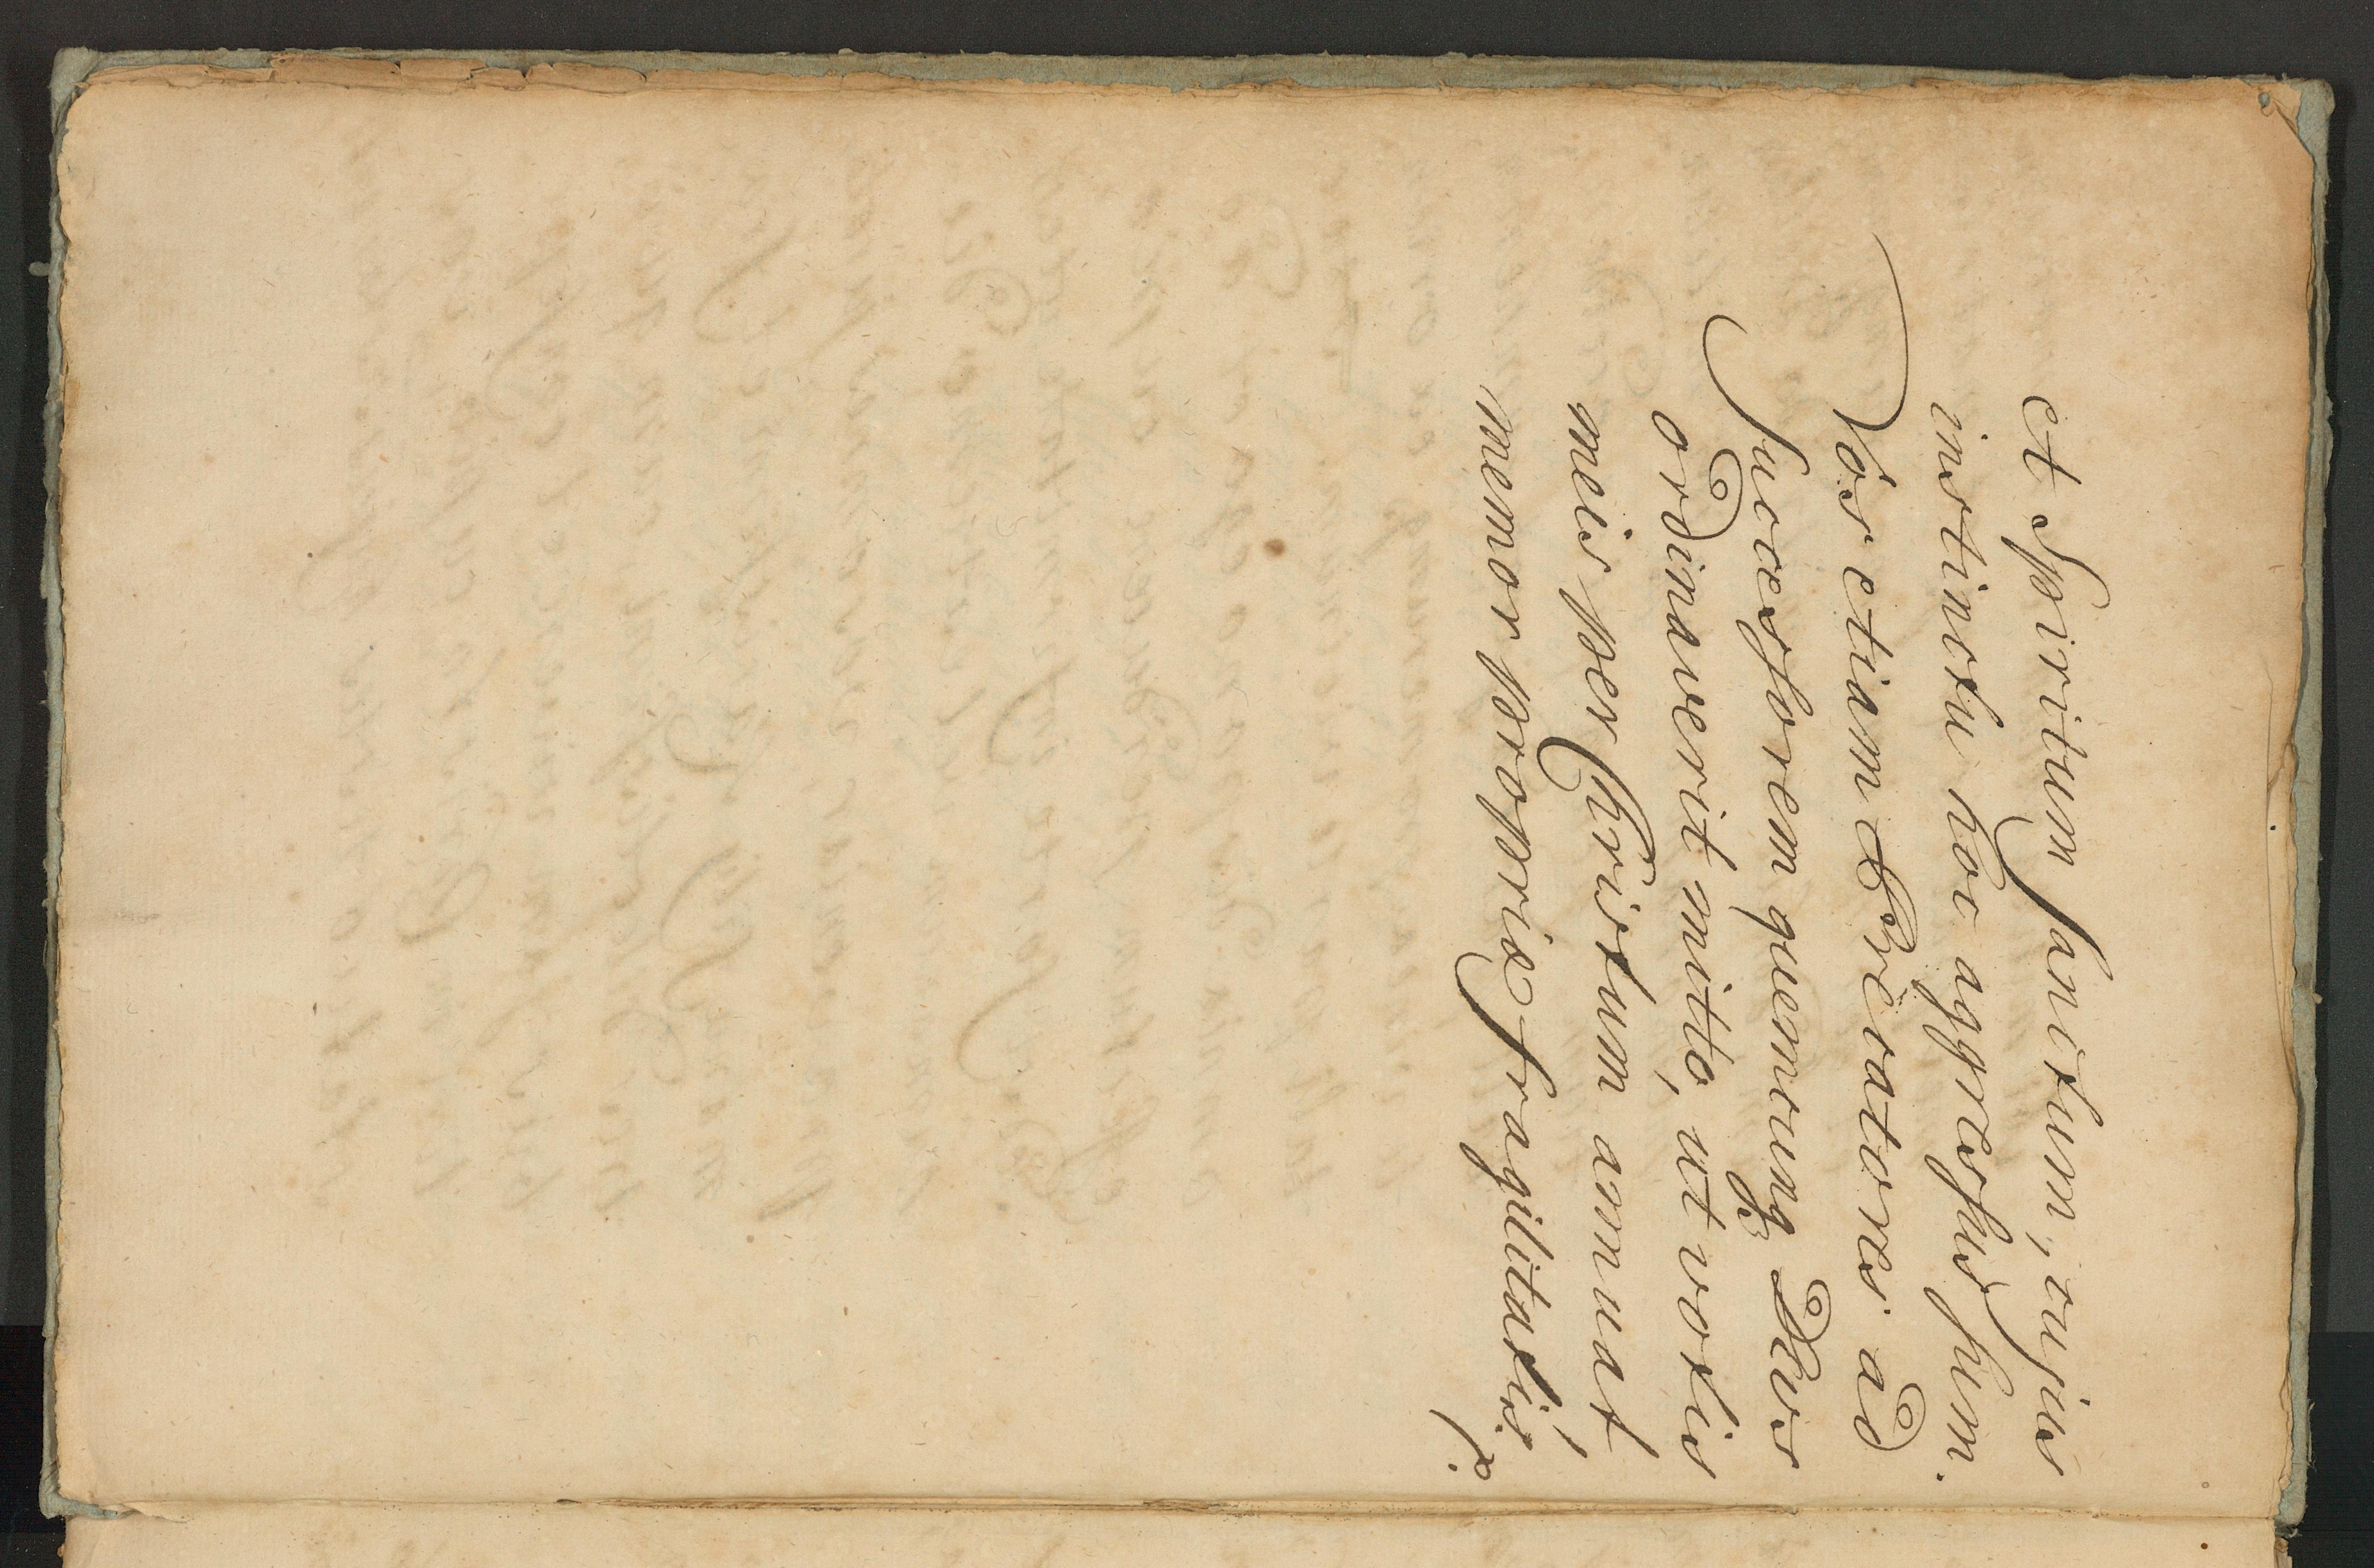 et Spiritum Sanctum, cujus
instinctu hoc aggressus sum.
Vos etiam Precatores ad
Successorem quemcunqꝫ Deus
ordinaverit mitto, ut votis
meis per Christum annuat
memor propriæ fragilitatis.